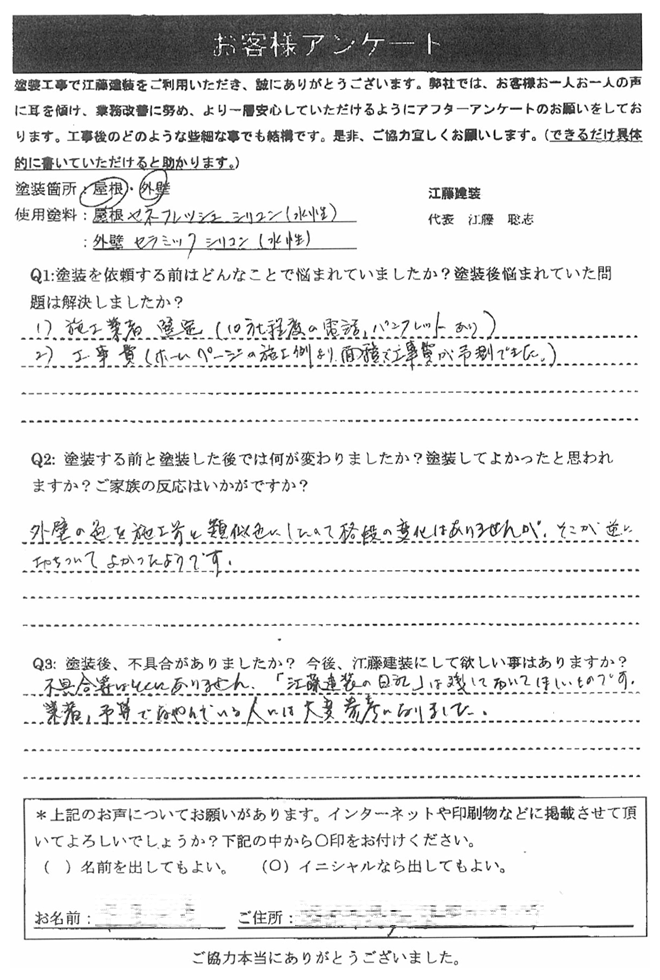 お客様アンケート
塗装工事で江藤建装をご利用いただき、誠にありがとうございます。弊社では、お客様お一人お一人の声
に耳を傾け、業務改善に努め、より一層安心していただけるようにアフターアンケートのお願いをしてお
ります。工事後のどのような些細な事でも結構です。是非、ご協力宜しくお願いします。（できるだけ具体
的に書いていただけると助かります。）
塗装箇所：屋根・外壁
江藤建装
使用塗料：屋根 セネフレッシュ シリコン（水性）
代表 江藤 聡志
：外壁 セラミック シリコン（水性）
Q1:塗装を依頼する前はどんなことで悩まれていましたか？塗装後悩まれていた問
題は解決しましたか？
1) 施工業者 選定（10社程度の電話，パンフレットあり）
2) 工事費（ホームページの施工例より面積で工事費が予測できました。）
Q2: 塗装する前と塗装した後では何が変わりましたか？塗装してよかったと思われ
ますか？ご家族の反応はいかがですか？
外壁の色を施工前と類似色にしたので格段の変化はありませんが、そこが逆に
落ちついてよかったようです。
Q3: 塗装後、不具合がありましたか？ 今後、江藤建装にして欲しい事はありますか？
不具合等はとくにありません。「江藤建装の日記」は残しておいてほしいものです。
業者，予算でなやんでいる人には大変参考になりました。
＊上記のお声についてお願いがあります。インターネットや印刷物などに掲載させて頂
いてよろしいでしょうか？下記の中から〇印をお付けください。
（ ）名前を出してもよい。 （〇）イニシャルなら出してもよい。
お名前： ご住所：
ご協力本当にありがとうございました。